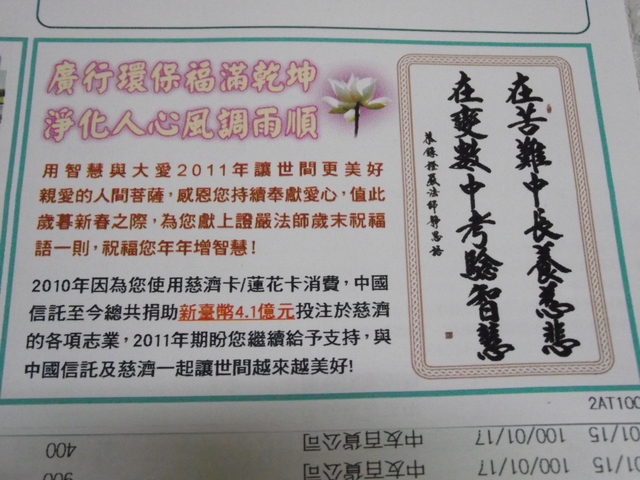 廣行環保福滿乾坤
淨化人心風調雨順
用智慧與大愛2011年讓世間更美好
親愛的人間菩薩，感恩您持續奉獻愛心，值此
歲暮新春之際，為您獻上證嚴法師歲末祝福
語一則，祝福您年年增智慧！
2010年因為您使用慈濟卡/蓮花卡消費，中國
信託至今總共捐助新臺幣4.1億元投注於慈濟
的各項志業，2011年期盼您繼續給予支持，與
中國信託及慈濟一起讓世間越來越美好！
在苦難中長養慈悲
在變數中考驗智慧
恭錄證嚴法師靜思語
2AT100
01/15 100/01/17 中友百貨公司 400
01/15 100/01/17 中友百貨公司 900